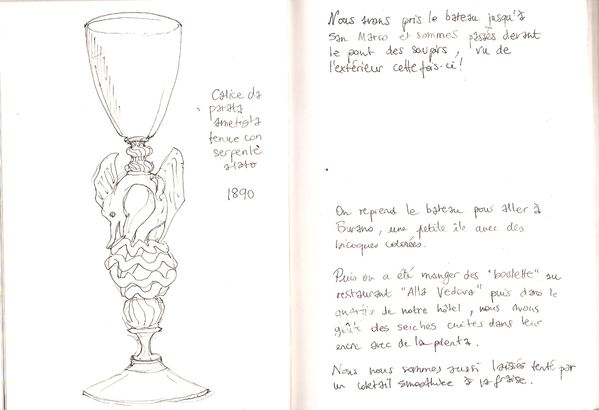 Calice da
parata
ametista
tenue con
serpente
alato
1890
Nous avons pris le bateau jusqu'à
San Marco et sommes passés devant
le pont des soupirs, vu de
l'extérieur cette fois-ci!
On reprend le bateau pour aller à
Burano, une petite île avec des
bicoques colorées.
Puis on a été manger des "boulette" au
restaurant "Alla Vedova" puis dans le
quartier de notre hôtel, nous avons
goûté des seiches cuites dans leur
encre avec de la polenta.
Nous nous sommes aussi laissés tenté par
un coktail smoothie à la fraise.